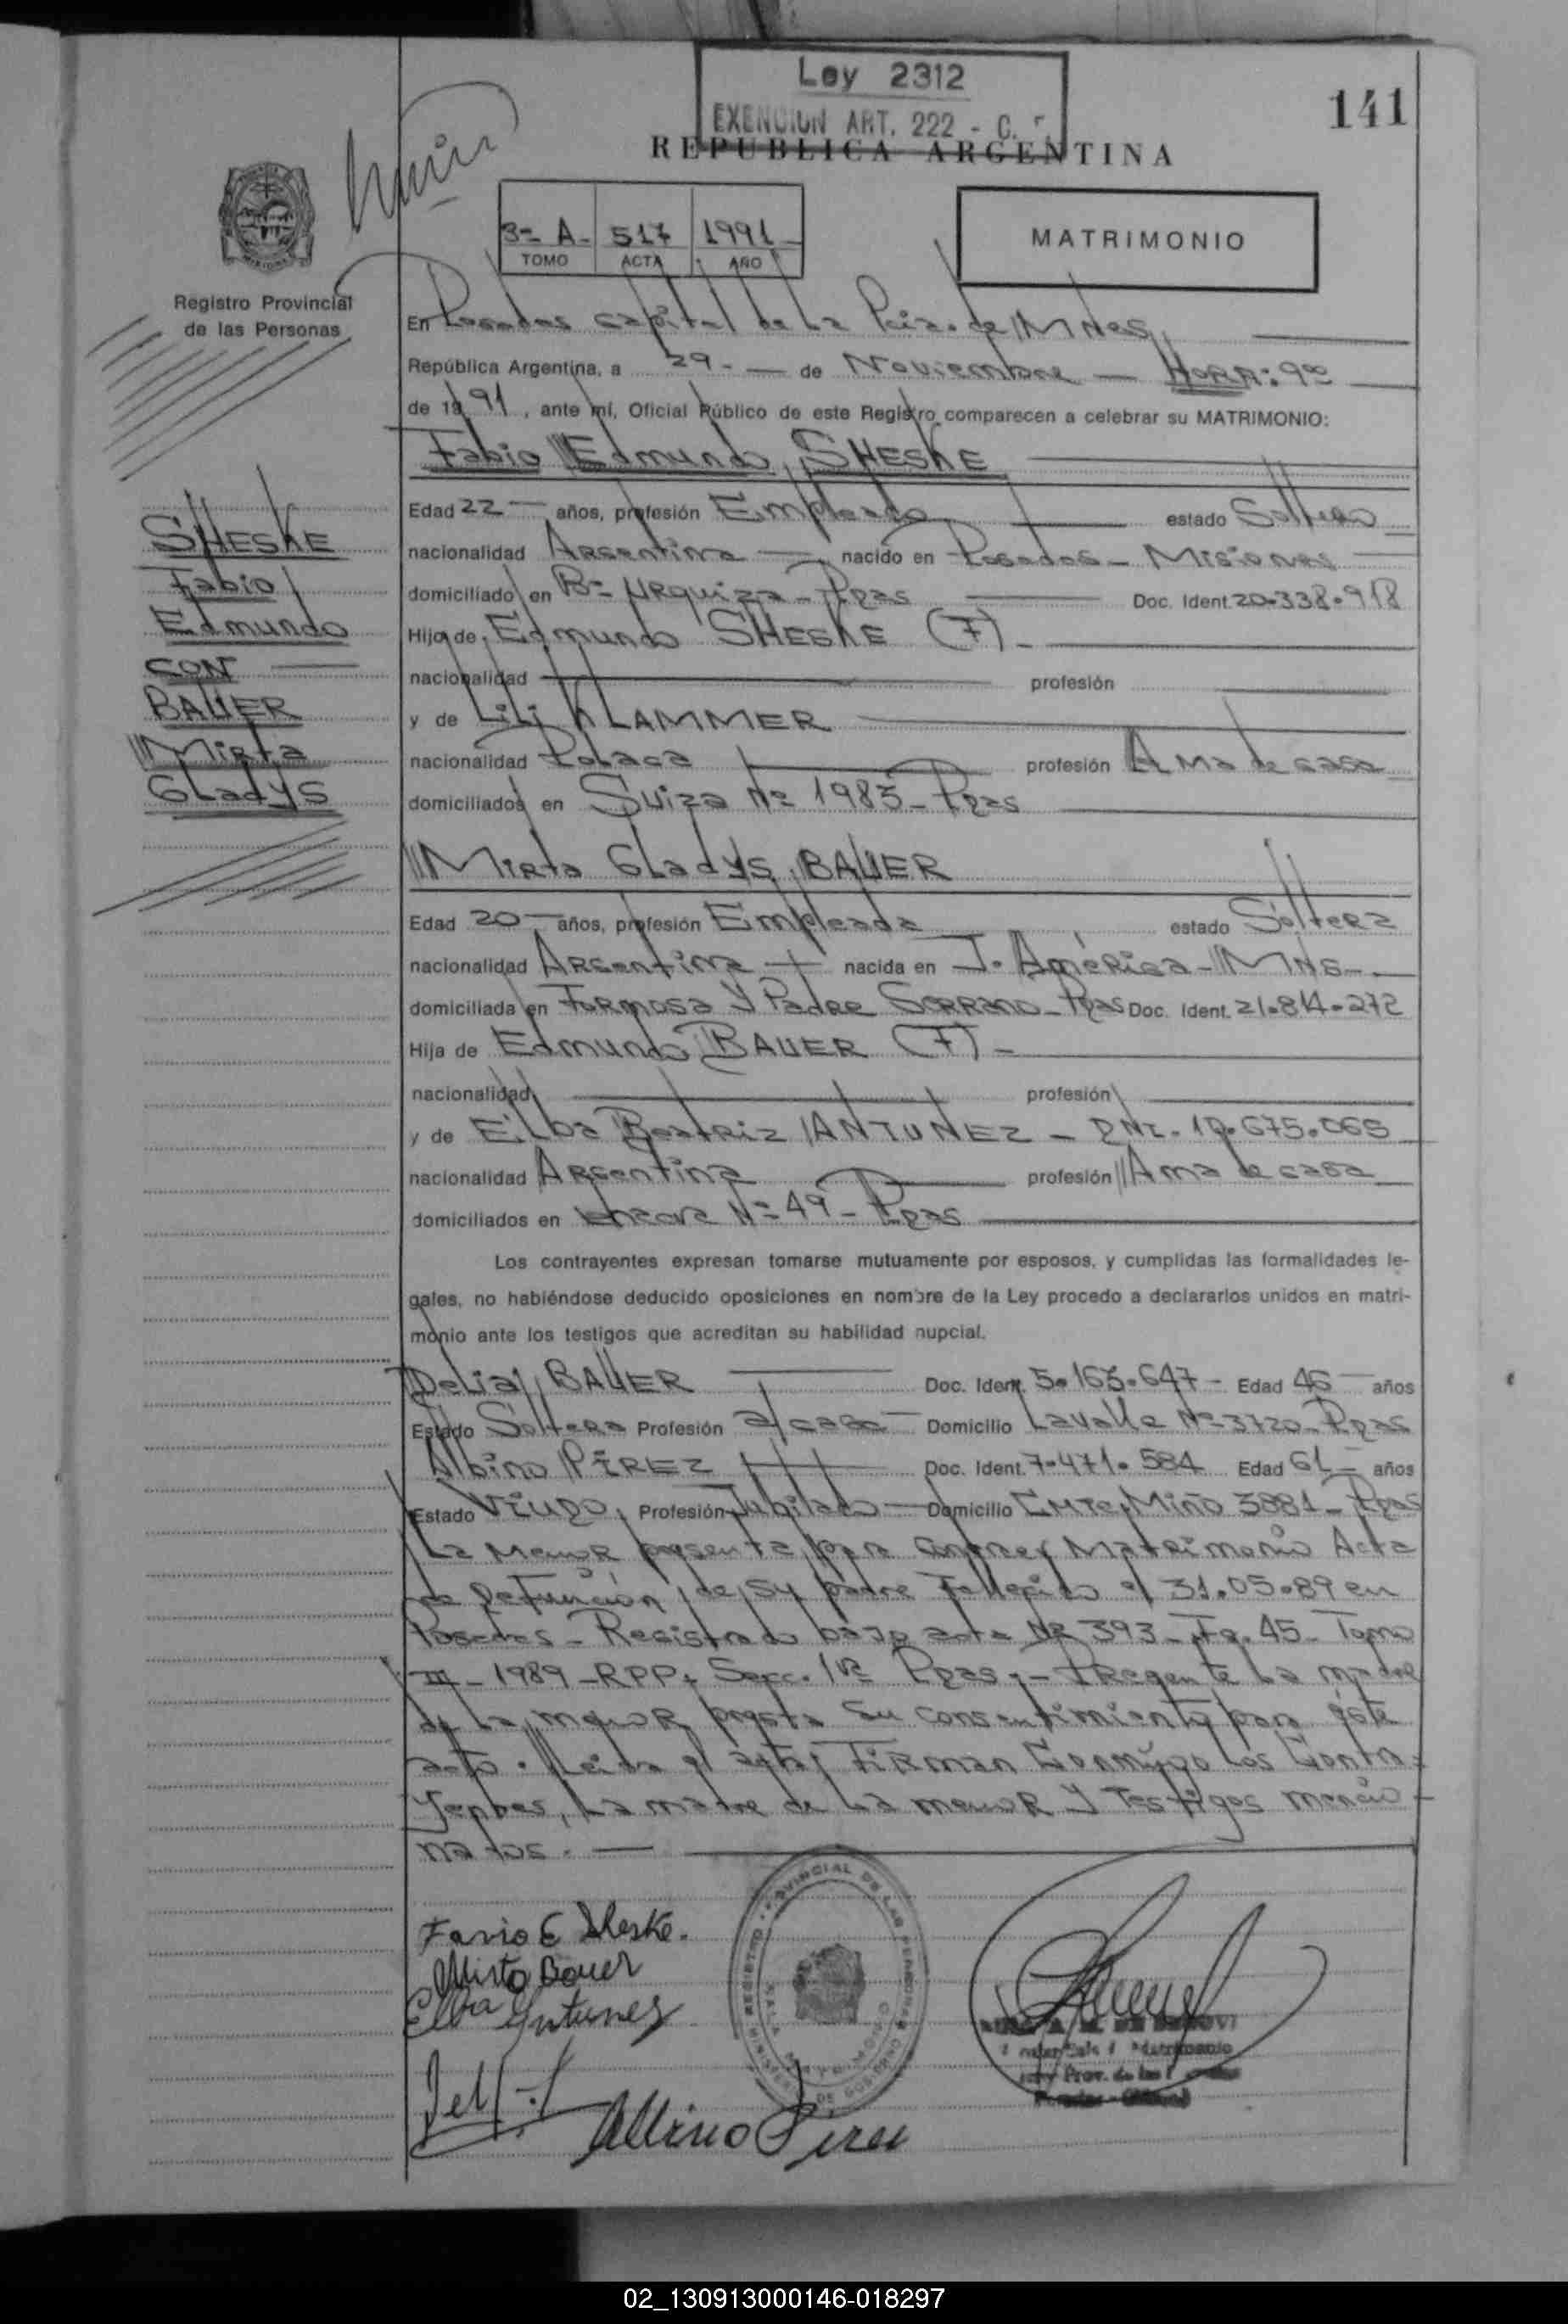 Ley 2312
EXENCION ART. 222 - C.
141
REPUBLICA ARGENTINA
3= A- 517 1991
TOMO ACTA AÑO
MATRIMONIO
Registro Provincial
de las Personas
En Posadas capital de La Pcia. de Mnes
República Argentina, a 29 - de Noviembre - HORA: 9oo
de 1991, ante mí, Oficial Público de este Registro comparecen a celebrar su MATRIMONIO:
Fabio Edmundo SHESKE
SHESKE
Fabio
Edmundo
CON
BAUER
Mirta
GLadYS
Edad 22 - años, profesión Empleado estado Soltero
nacionalidad Argentina - nacido en Posadas - Misiones
domiciliado en Bº Urquiza - Pdas Doc. Ident. 20.338.918
Hijo de Edmundo SHESKE (F) -
nacionalidad profesión
y de Lili KLAMMER
nacionalidad Polaca profesión Ama de casa
domiciliados en Suiza Nº 1983 - Pdas
Mirta GLadYS BAUER
Edad 20 - años, profesión Empleada estado Soltera
nacionalidad Argentina - nacida en J. América - MNS -
domiciliada en Formosa Y Padre Serrano - Pdas Doc. Ident. 21.814.272
Hija de Edmundo BAUER (F) -
nacionalidad profesión
y de Elba Beatriz ANTUNEZ - DNI. 10.675.065
nacionalidad Argentina profesión Ama de casa
domiciliados en Nº 49 - Pdas
Los contrayentes expresan tomarse mutuamente por esposos, y cumplidas las formalidades le-
gales, no habiéndose deducido oposiciones en nombre de la Ley procedo a declararlos unidos en matri-
monio ante los testigos que acreditan su habilidad nupcial.
Delia BAUER Doc. Ident. 5.163.647 - Edad 46 años
Estado Soltera Profesión a/casa Domicilio Lavalle Nº 3720 - Pdas
Albino PIREZ Doc. Ident. 7.471.584 Edad 61 - años
Estado Viudo Profesión Jubilado - Domicilio Cmte Miño 3881 - Pdas
La Menor presenta para contraer Matrimonio Acta
de Defunción de su padre Fallecido el 31.05.89 en
Posadas - Registrado bajo acta Nº 393 - Fº. 45 - Tomo
III - 1989 - RPP. Secc. 1ra Pdas. - Presente La madre
de La menor presta su consentimiento para éste
acto. Leída el acta, Firman Conmigo Los Contra-
yentes, La madre de La menor Y Testigos mencio-
nados. -
Favio E Sheske.
Mirta Bauer
Elba Antunez
REGISTRO PROVINCIAL DE LAS PERSONAS
MINISTERIO DE GOBIERNO
SALA MATRIMONIO
Albino Pirez
02_130913000146-018297